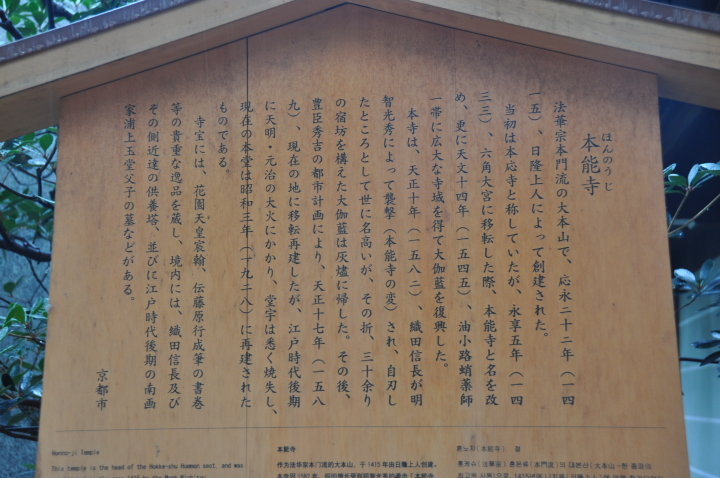 ほんのうじ
本能寺
法華宗本門流の大本山で、応永二十二年（一四
一五）、日隆上人によって創建された。
当初は本応寺と称していたが、永享五年（一四
三三）、六角大宮に移転した際、本能寺と名を改
め、更に天文十四年（一五四五）、油小路蛸薬師
一帯に広大な寺域を得て大伽藍を復興した。
本寺は、天正十年（一五八二）　織田信長が明
智光秀によって襲撃（本能寺の変）され、自刃し
たところとして世に名高いが、その折、三十余り
の宿坊を構えた大伽藍は灰燼に帰した。その後、
豊臣秀吉の都市計画により、天正十七年（一五八
九）、現在の地に移転再建したが、江戸時代後期
に天明・元治の大火にかかり、堂宇は悉く焼失し、
現在の本堂は昭和三年（一九二八）に再建された
ものである。
寺宝には、花園天皇宸翰、伝藤原行成筆の書巻
等の貴重な逸品を蔵し、境内には、織田信長及び
その側近達の供養塔、並びに江戸時代後期の南画
家浦上玉堂父子の墓などがある。
京都市
Honno-ji Temple
This temple is the head of the Hokke-shu Honmon sect, and was
本能寺
作为法华宗本门流的大本山，于1415年由日隆上人创建。
혼노지(本能寺) 절